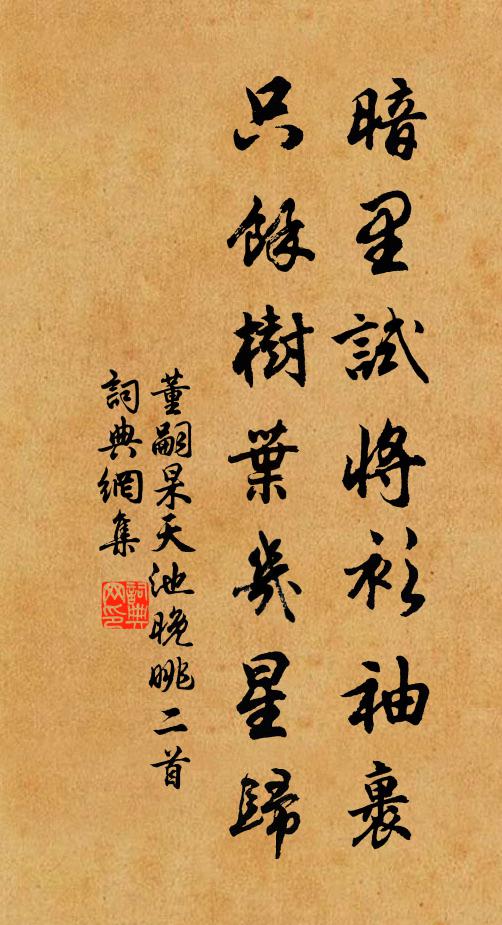 暗里試將衫袖裹
只餘樹葉幾星歸
董嗣杲天池晚眺二首
詞典網集
詞典网印